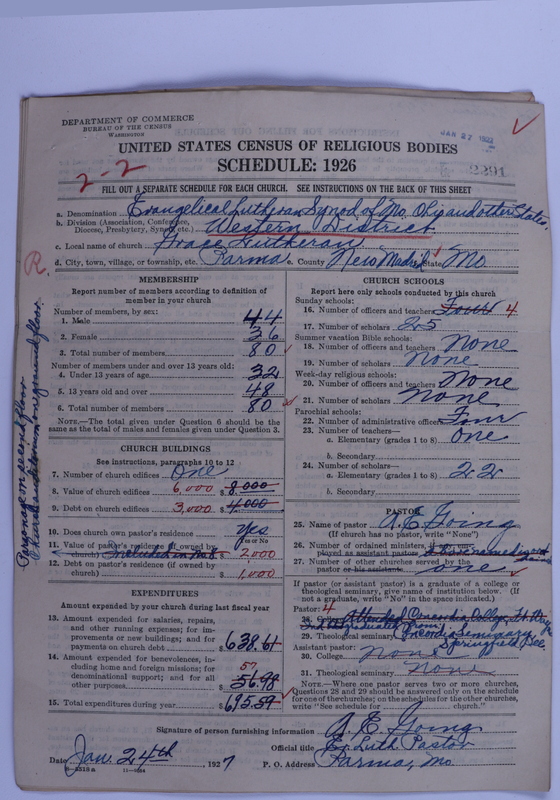 DEPARTMENT OF COMMERCE
BUREAU OF THE CENSUS
WASHINGTON
JAN 27
UNITED STATES CENSUS OF RELIGIOUS BODIES
SCHEDULE: 1926
2-2
2291
FILL OUT A SEPARATE SCHEDULE FOR EACH CHURCH. SEE INSTRUCTIONS ON THE BACK OF THIS SHEET
a. Denomination Evangelical Lutheran Synod of Mo. Ohio and other States,
b. Division (Association, Conference, Diocese, Presbytery, Synod, etc.) Western District
c. Local name of church Grace Lutheran
d. City, town, village, or township, etc. Parma e. County New Madrid State Mo.
R
Parsonage on second floor
MEMBERSHIP
Report number of members according to definition of member in your church
Number of members, by sex:
1. Male 44
2. Female 36
3. Total number of members 80
Number of members under and over 13 years old:
4. Under 13 years of age 32
5. 13 years old and over 48
6. Total number of members 80
NOTE.—The total given under Question 6 should be the same as the total of males and females given under Question 3.
CHURCH BUILDINGS
See instructions, paragraphs 10 to 12
7. Number of church edifices One
8. Value of church edifices 6,000 $ 8,000
9. Debt on church edifices 3,000 $ 4,000
10. Does church own pastor's residence? yes
Yes or No
11. Value of pastor's residence (if owned by church) Included in No 8 $ 2,000
12. Debt on pastor's residence (if owned by church) $ 1,000
EXPENDITURES
Amount expended by your church during last fiscal year
13. Amount expended for salaries, repairs, and other running expenses; for improvements or new buildings; and for payments on church debt $ 638.61
14. Amount expended for benevolences, including home and foreign missions; for denominational support; and for all other purposes 57 $ 56.98
15. Total expenditures during year $ 695.59
CHURCH SCHOOLS
Report here only schools conducted by this church
Sunday schools:
16. Number of officers and teachers Four 4
17. Number of scholars 25
Summer vacation Bible schools:
18. Number of officers and teachers None
19. Number of scholars None
Week-day religious schools:
20. Number of officers and teachers None
21. Number of scholars None
Parochial schools:
22. Number of administrative officers Four
23. Number of teachers—
a. Elementary (grades 1 to 8) One
b. Secondary
24. Number of scholars—
a. Elementary (grades 1 to 8) 22
b. Secondary
PASTOR
25. Name of pastor A. E. Going
(If church has no pastor, write "None")
26. Number of ordained ministers, if any, employed as assistant pastor
27. Number of other churches served by the pastor or his assistants One
If pastor (or assistant pastor) is a graduate of a college or theological seminary, give name of institution below. (If not a graduate, write "No" in the space indicated.)
Pastor: 4
28. College Attended Concordia College, St.
29. Theological seminary Concordia Seminary, Springfield
Assistant pastor:
30. College None
31. Theological seminary None
NOTE.—Where one pastor serves two or more churches, Questions 28 and 29 should be answered only on the schedule for one of the churches; on the schedules for the other churches, write "See schedule for church."
Signature of person furnishing information A. E. Going
Official title Ev. Luth Pastor
Date Jan. 24th, 1927 P. O. Address Parma, Mo.